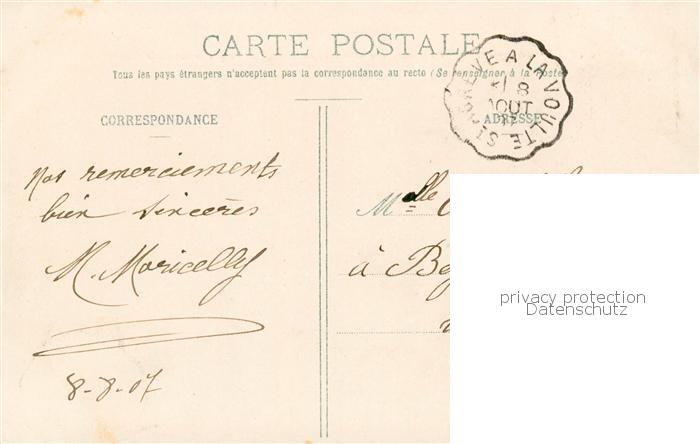 CARTE POSTALE
Tous les pays étrangers n'acceptent pas la correspondance au recto (Se renseigner à la Poste)
CORRESPONDANCE
ADRESSE
8
AOUT
Nos remerciements
bien sincères
M. Maricelly
8-8-07
Melle
à
privacy protection
Datenschutz